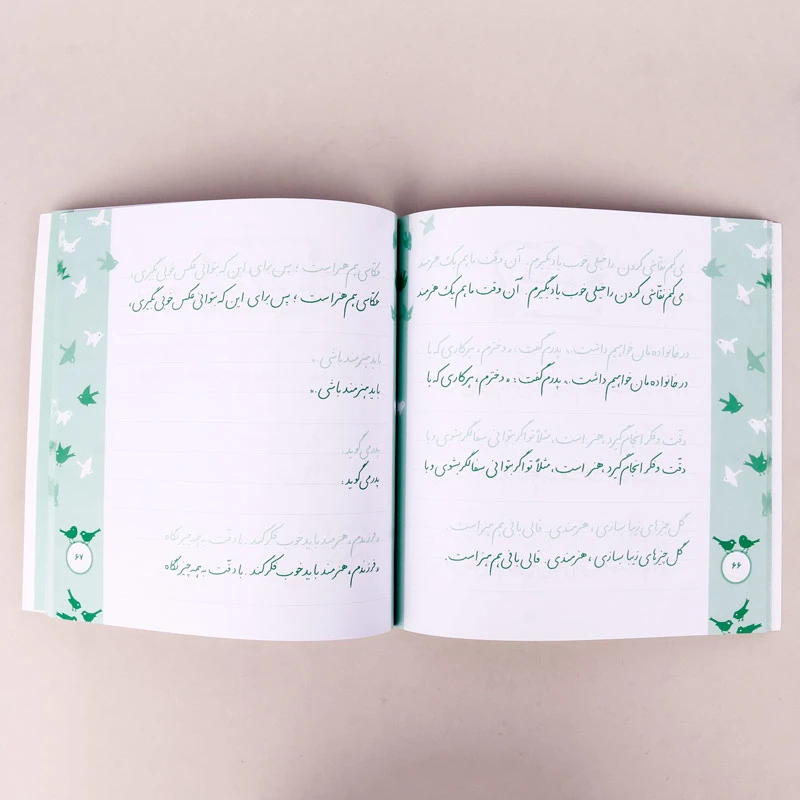 می‌کنم نقّاشی کردن را خیلی خوب یاد بگیرم. آن وقت ما هم یک هنرمند
می‌کنم نقّاشی کردن را خیلی خوب یاد بگیرم. آن وقت ما هم یک هنرمند
در خانواده‌مان خواهیم داشت.» پدرم گفت: «دخترم، هر کاری که با
در خانواده‌مان خواهیم داشت.» پدرم گفت: «دخترم، هر کاری که با
دقّت و فکر انجام گیرد، هنر است. مثلاً تو اگر بتوانی سفالگر بشوی و با
دقّت و فکر انجام گیرد، هنر است. مثلاً تو اگر بتوانی سفالگر بشوی و با
گل چیزهای زیبا بسازی، هنرمندی. قالی بافی هم هنر است.
گل چیزهای زیبا بسازی، هنرمندی. قالی بافی هم هنر است.
۶۶
عکّاسی هم هنر است؛ پس برای این که بتوانی عکس خوبی بگیری،
عکّاسی هم هنر است؛ پس برای این که بتوانی عکس خوبی بگیری،
باید هنرمند باشی.»
باید هنرمند باشی.»
پدر می‌گوید:
پدر می‌گوید:
«فرزندم، هنرمند باید خوب فکر کند. با دقّت به همه چیز نگاه
«فرزندم، هنرمند باید خوب فکر کند. با دقّت به همه چیز نگاه
۶۷